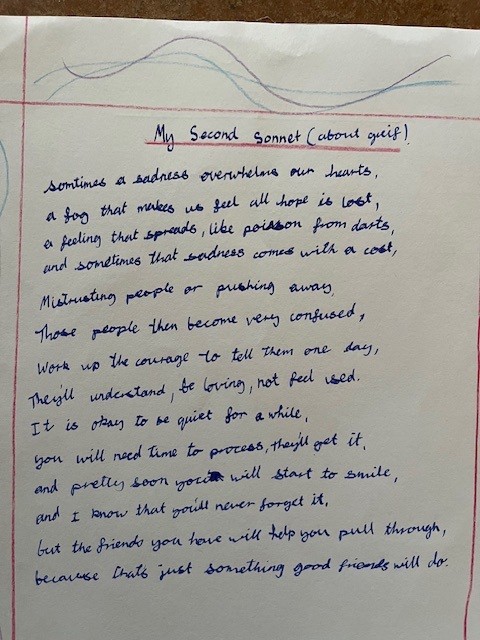 My Second Sonnet (about guif)
somtimes a sadness overwhelms our hearts,
a fog that makes us feel all hope is lost,
a feeling that spreads, like poisson from darts,
and sometimes that sadness comes with a cost,
Mistrusting people or pushing away,
Those people then become very confused,
Work up the courage to tell them one day,
They'll understand, be loving, not feel used.
It is okay to be quiet for a while,
you will need time to process, they'll get it,
and pretty soon you will start to smile,
and I know that you'll never forget it,
but the friends you have will help you pull through,
because thats just something good friends will do.